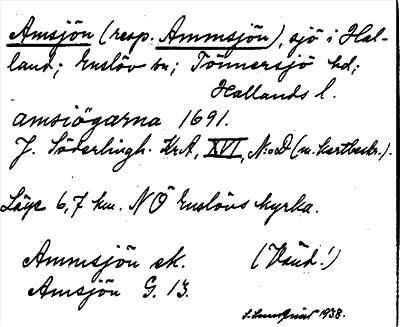 Amsjön (resp. Ammsjön), sjö i Hal-
land; Enslöv sn; Tönnersjö hd;
Hallands l.
amsiögarna 1691.
J. Söderlingh. KrA, XVI, N:o D (m. kartbeskr.).
Läge 6,7 km. NÖ Enslövs kyrka.
Ammsjön ek. (Känd!)
Amsjön G. 13.
1938.